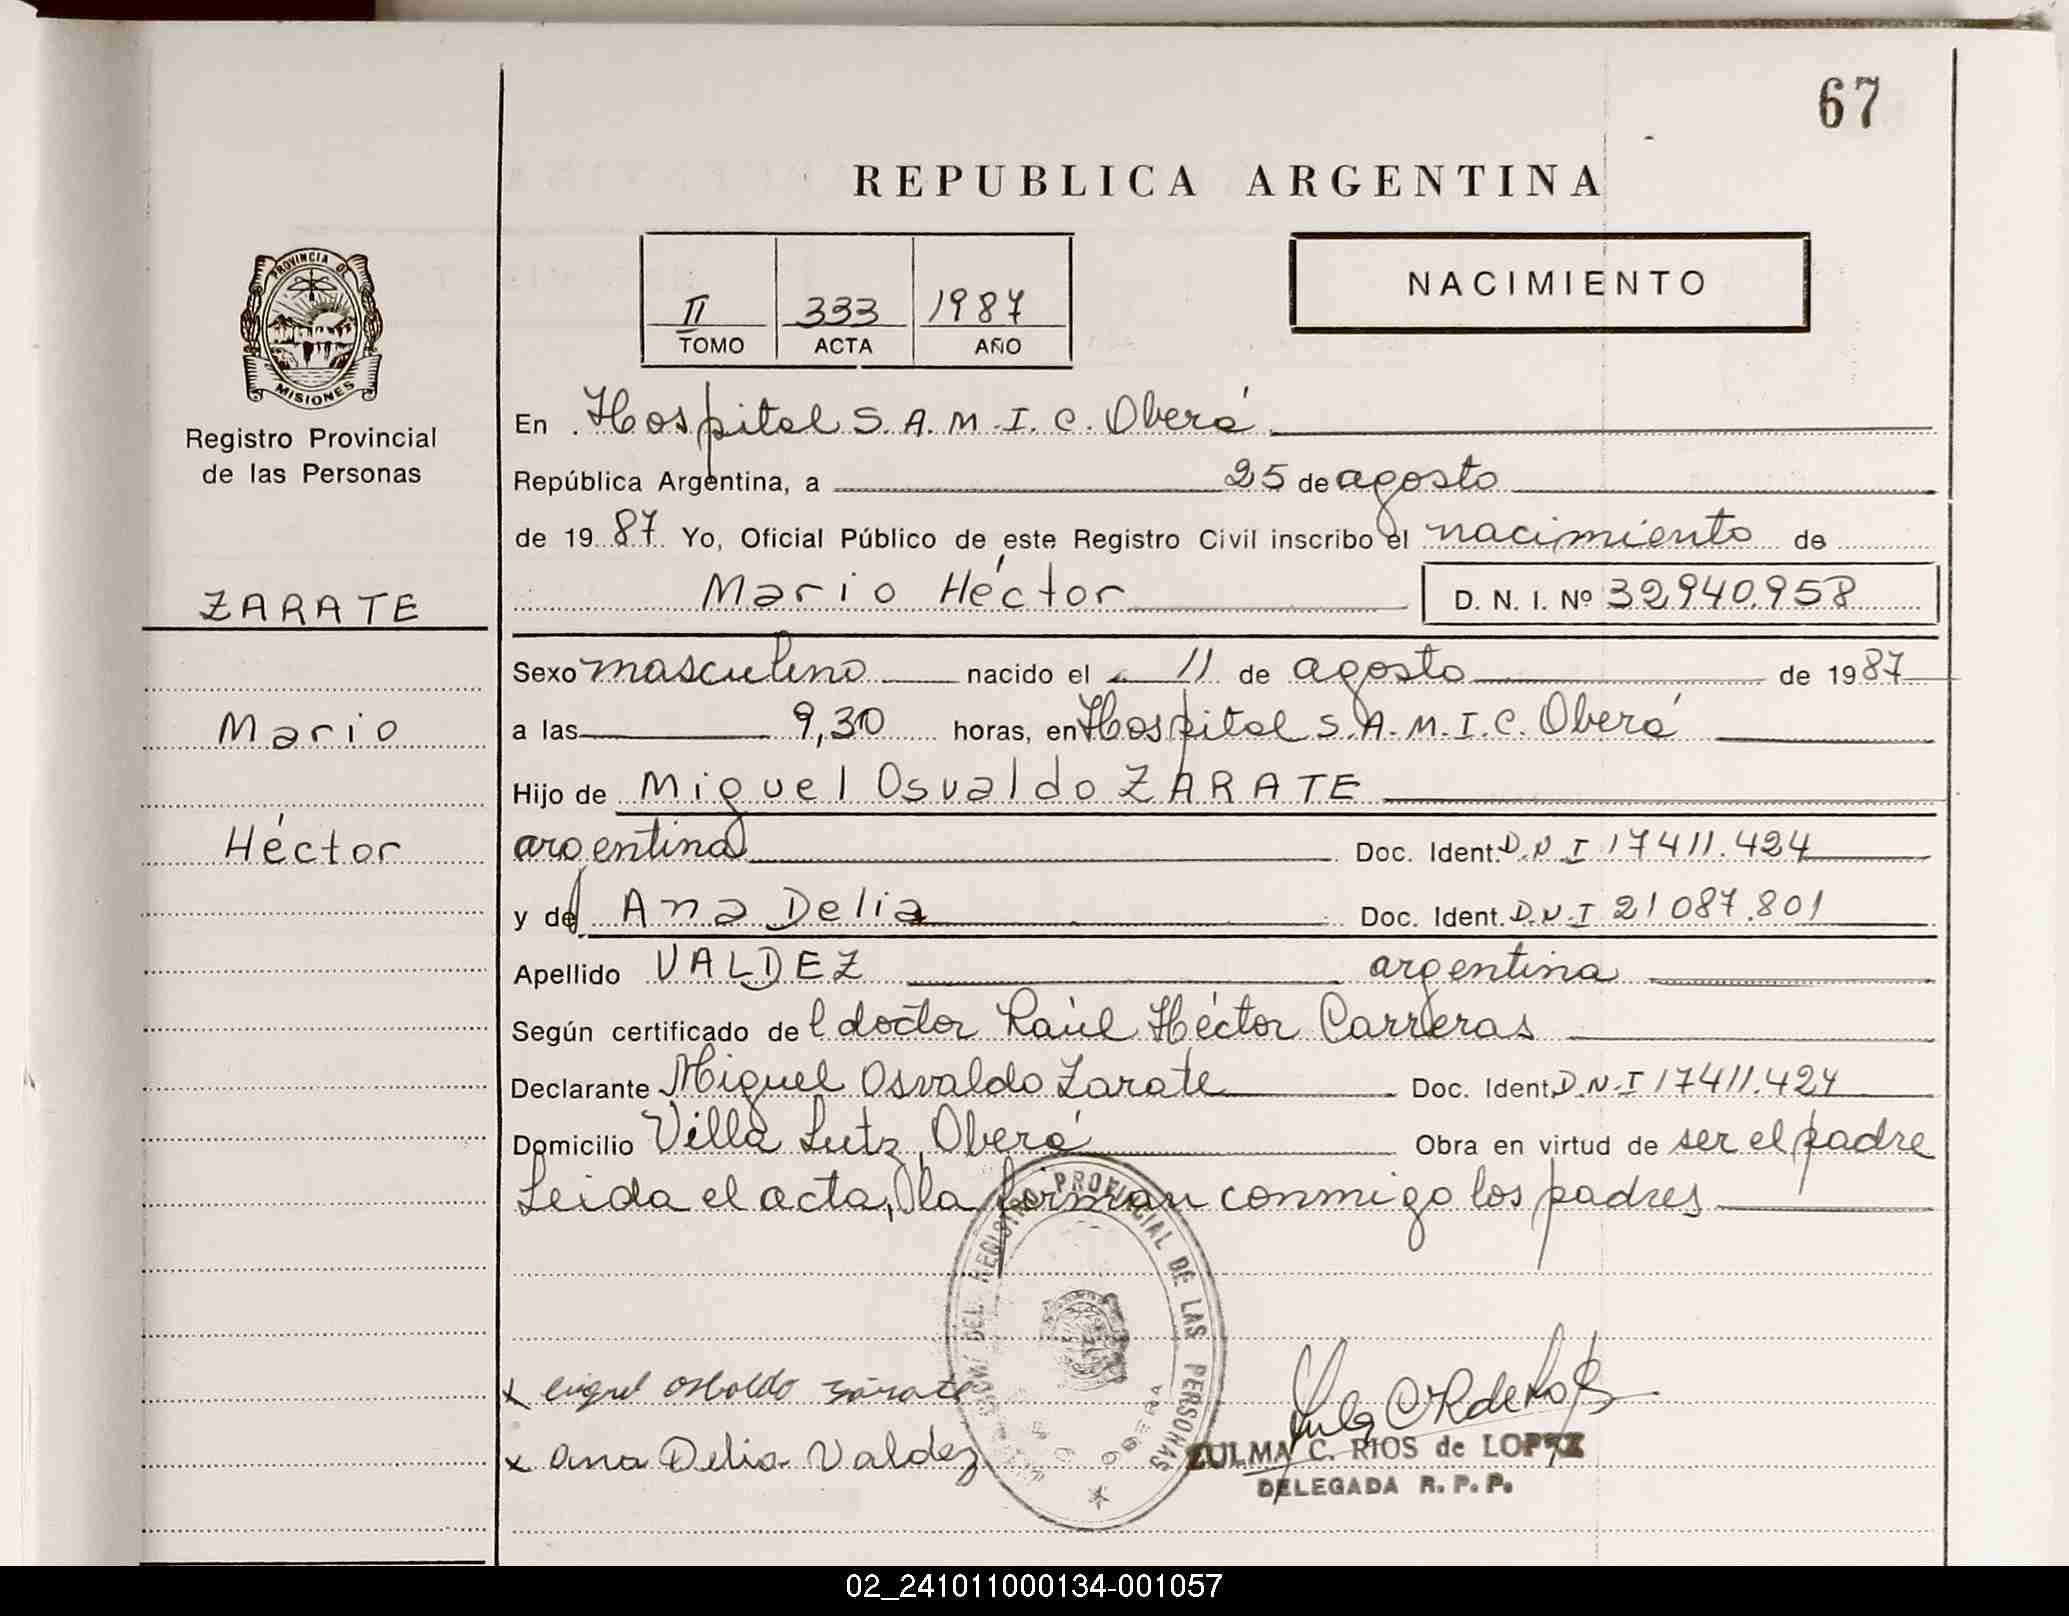 67
REPUBLICA ARGENTINA
II 333 1987
TOMO ACTA AÑO
NACIMIENTO
PROVINCIA DE
MISIONES
Registro Provincial
de las Personas
ZARATE
Mario
Héctor
En Hospital S.A.M.I.C. Oberá
República Argentina, a 25 de agosto
de 1987 Yo, Oficial Público de este Registro Civil inscribo el nacimiento de
Mario Héctor D. N. I. Nº 32940.958
Sexo masculino nacido el 11 de agosto de 1987
a las 9,30 horas, en Hospital S.A.M.I.C. Oberá
Hijo de Miguel Osvaldo ZARATE
argentina Doc. Ident. D.N.I 17411.424
y de Ana Delia Doc. Ident. D.N.I 21087.801
Apellido VALDEZ argentina
Según certificado del doctor Raúl Héctor Carreras
Declarante Miguel Osvaldo Zarate Doc. Ident. D.N.I 17411.424
Domicilio Villa Lutz, Oberá Obra en virtud de ser el padre
Leida el acta, la firman conmigo los padres
DEL REGISTRO PROVINCIAL DE LAS PERSONAS
OBERA
x Miguel Osbaldo Zárate
x Ana Delia Valdez
ZULMA C. RIOS de LOPEZ
DELEGADA R. P. P.
02_241011000134-001057